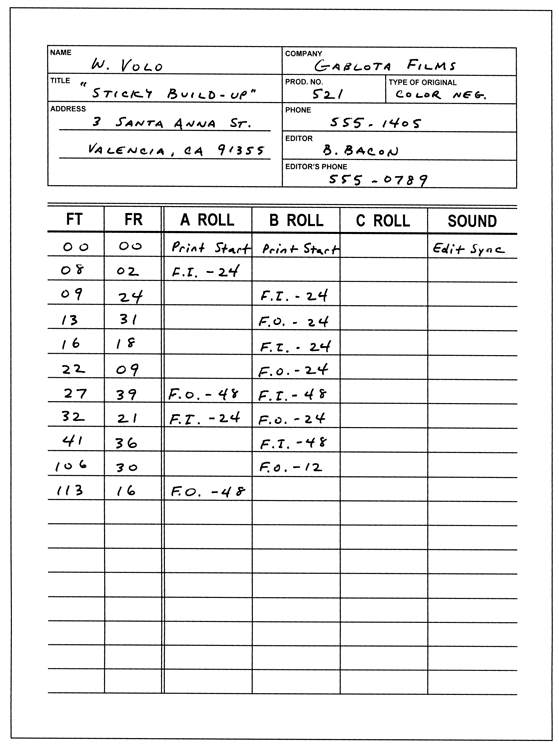 NAME
W. VOLO
COMPANY
GABLOTA FILMS
TITLE
"STICKY BUILD-UP"
PROD. NO.
521
TYPE OF ORIGINAL
COLOR NEG.
ADDRESS
3 SANTA ANNA ST.
VALENCIA, CA 91355
PHONE
555-1405
EDITOR
B. BACON
EDITOR'S PHONE
555-0789
FT FR A ROLL B ROLL C ROLL SOUND
00 00 Print Start Print Start Edit Sync
08 02 F.I. -24
09 24 F.I. -24
13 31 F.O. -24
16 18 F.I. -24
22 09 F.O. -24
27 39 F.O. -48 F.I. -48
32 21 F.I. -24 F.O. -24
41 36 F.I. -48
106 30 F.O. -12
113 16 F.O. -48